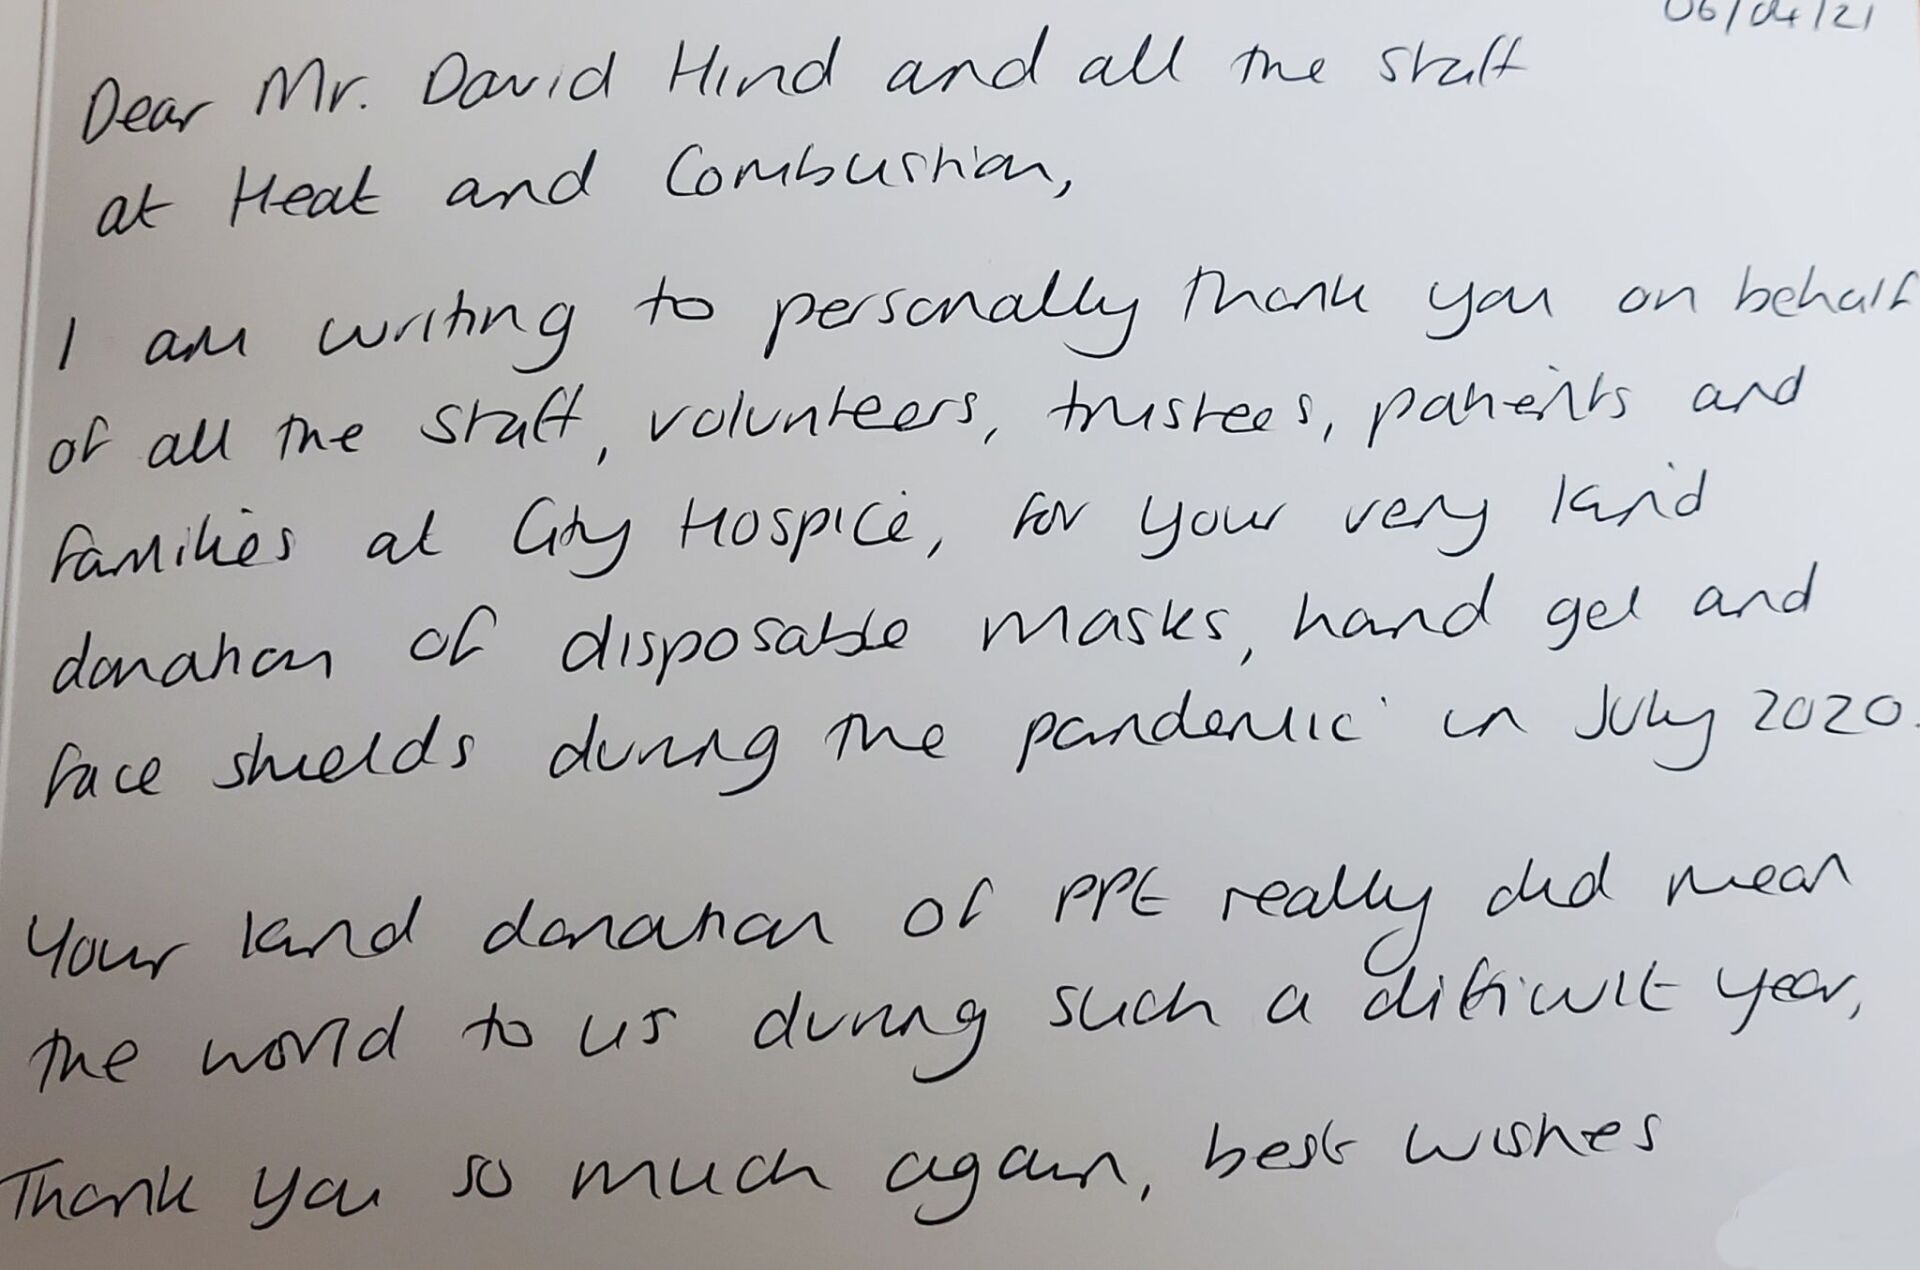 06/04/21
Dear Mr. David Hind and all the staff
at Heat and Combustion,
I am writing to personally thank you on behalf
of all the staff, volunteers, trustees, patients and
families at City Hospice, for your very kind
donation of disposable masks, hand gel and
face shields during the pandemic in July 2020.
Your kind donation of PPE really did mean
the world to us during such a difficult year,
Thank you so much again, best wishes